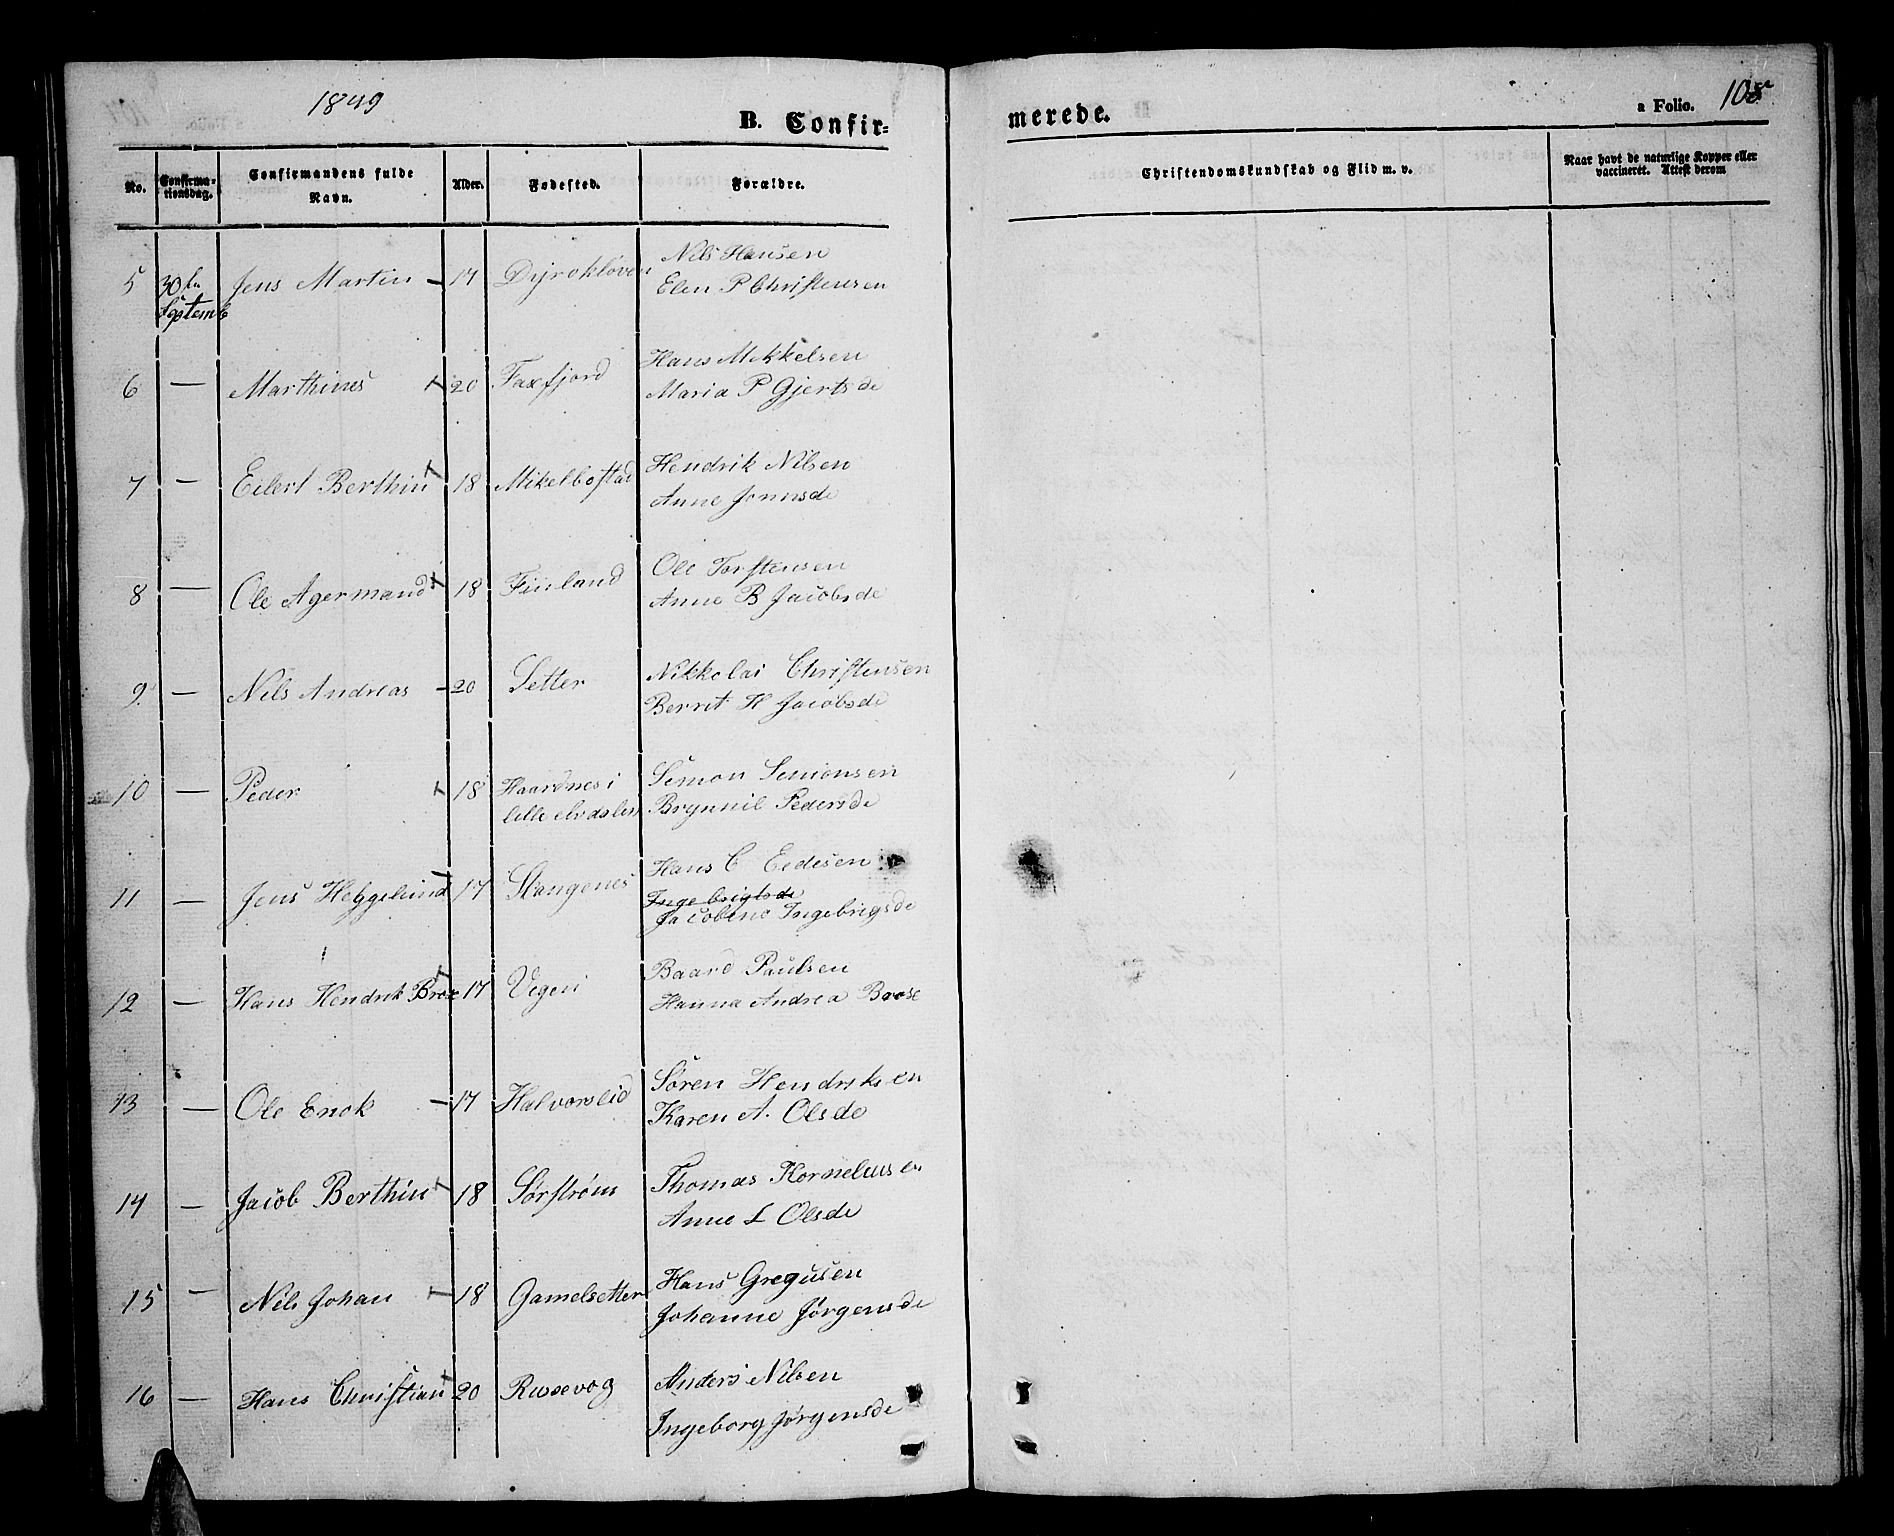 1849
B. Confir-
merede.
a Folio. 105
No.
Confirma-
tionsdag.
Confirmandens fulde
Navn.
Alder.
Fødested.
Forældre.
Christendomskundskab og Flid m. v.
Naar havt de naturlige Kopper eller
vaccineret. Attest derom
5 30te Septemb Jens Martin - 17 Dyrokløven Nils Hansen
Elen P Christensen
6 — Marthines 20 Faxefjord Hans Mekkelsen
Maria P Gjertsde
7 — Eilert Berthin 18 Mikelbostad Hendrik Nilsen
Anne Jonnsde
8 — Ole Agermand 18 Finland Ole Torstensen
Anne B Jacobsde
9. — Nils Andreas - 20 Setter Nikkolai Christensen
Berret H Jacobsde
10 — Peder 18 Haardnes i lille elvdalen Simon Simonsen
Brynnil Pedersde
11 — Jens Heggelund 17 Stangenes Hans C Eedesen
Ingebrigtsde
Jacobine Ingebrigsde
12 — Hans Hendrik Brose 17 Vegeri Baard Paulsen
Hanna Andrea Brose
13 — Ole Enok - 17 Halvorslid Søren Hendriksen
Karen A. Olsde
14 — Jacob Berthin 18 Sørstrøm Thomas Kornelius en
Anne L Olsde
15 — Nils Johan 18 Gamelsetter Hans Gregusen
Johanne Jørgensde
16 — Hans Christian 20 Russevog Anders Nilsen
Ingeborg Jørgensde